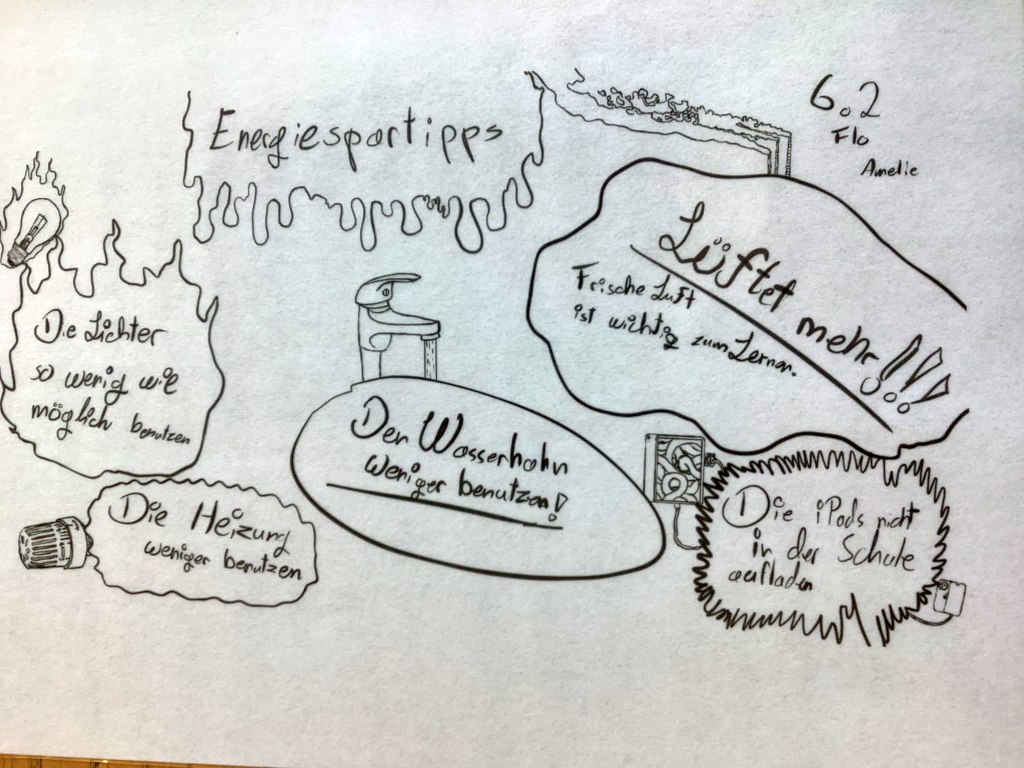 Energiespartipps
6.2
Flo
Amelie
Lüftet mehr!!!
Frische Luft
ist wichtig zum Lernen.
Die Lichter
so wenig wie
möglich benutzen
Den Wasserhahn
weniger benutzen!
Die Heizung
weniger benutzen
Die iPads nicht
in der Schule
aufladen